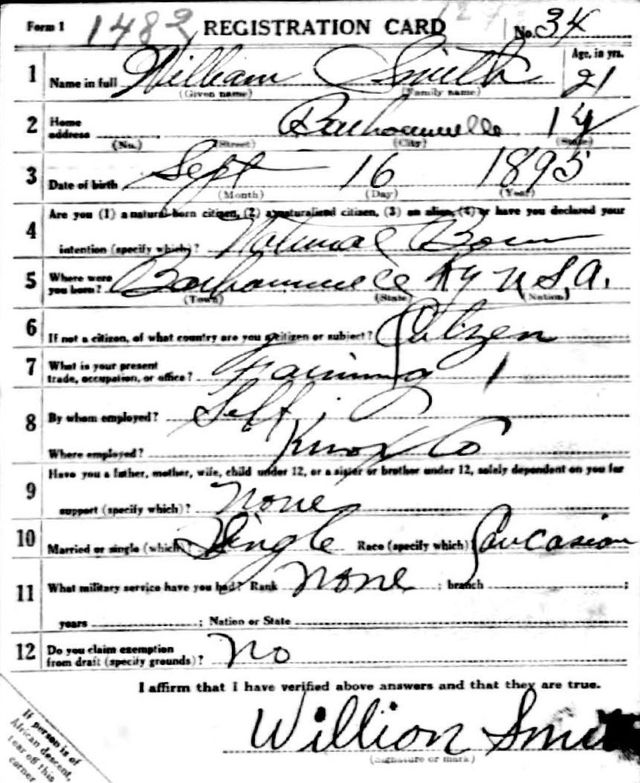 Form 1 1482 REGISTRATION CARD No. 34
1 Name in full William Smith Age, in yrs. 21
(Given name) (Family name)
2 Home address Barbourville Ky
(No.) (Street) (City) (State)
3 Date of birth Sept 16 1895
(Month) (Day) (Year)
Are you (1) a natural-born citizen, (2) a naturalized citizen, (3) an alien, (4) or have you declared your
4 intention (specify which)? Natural Born
5 Where were you born? Barbourville Ky U.S.A.
(Town) (State) (Nation)
6 If not a citizen, of what country are you a citizen or subject? Citzen
7 What is your present trade, occupation, or office? Farming
8 By whom employed? Self
Where employed? Knox Co
Have you a father, mother, wife, child under 12, or a sister or brother under 12, solely dependent on you for
9 support (specify which)? None
10 Married or single (which)? Single Race (specify which) Caucasian
11 What military service have you had? Rank None ; branch ;
years ; Nation or State
12 Do you claim exemption from draft (specify grounds)? No
I affirm that I have verified above answers and that they are true.
Willion
(Signature or mark)
If person is of
African descent,
tear off this
corner